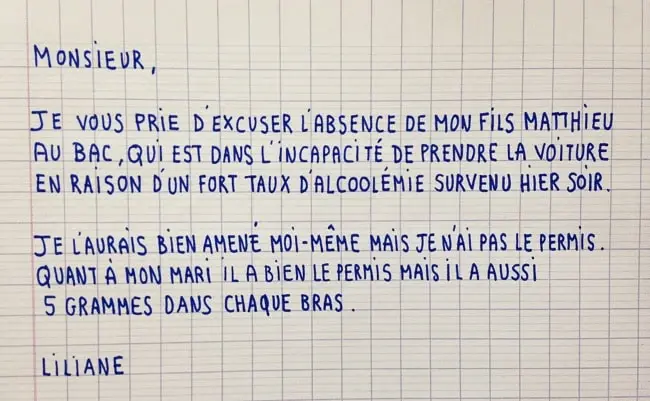 MONSIEUR,
JE VOUS PRIE D'EXCUSER L'ABSENCE DE MON FILS MATTHIEU
AU BAC, QUI EST DANS L'INCAPACITÉ DE PRENDRE LA VOITURE
EN RAISON D'UN FORT TAUX D'ALCOOLÉMIE SURVENU HIER SOIR.
JE L'AURAIS BIEN AMENÉ MOI-MÊME MAIS JE N'AI PAS LE PERMIS.
QUANT À MON MARI IL A BIEN LE PERMIS MAIS IL A AUSSI
5 GRAMMES DANS CHAQUE BRAS.
LILIANE